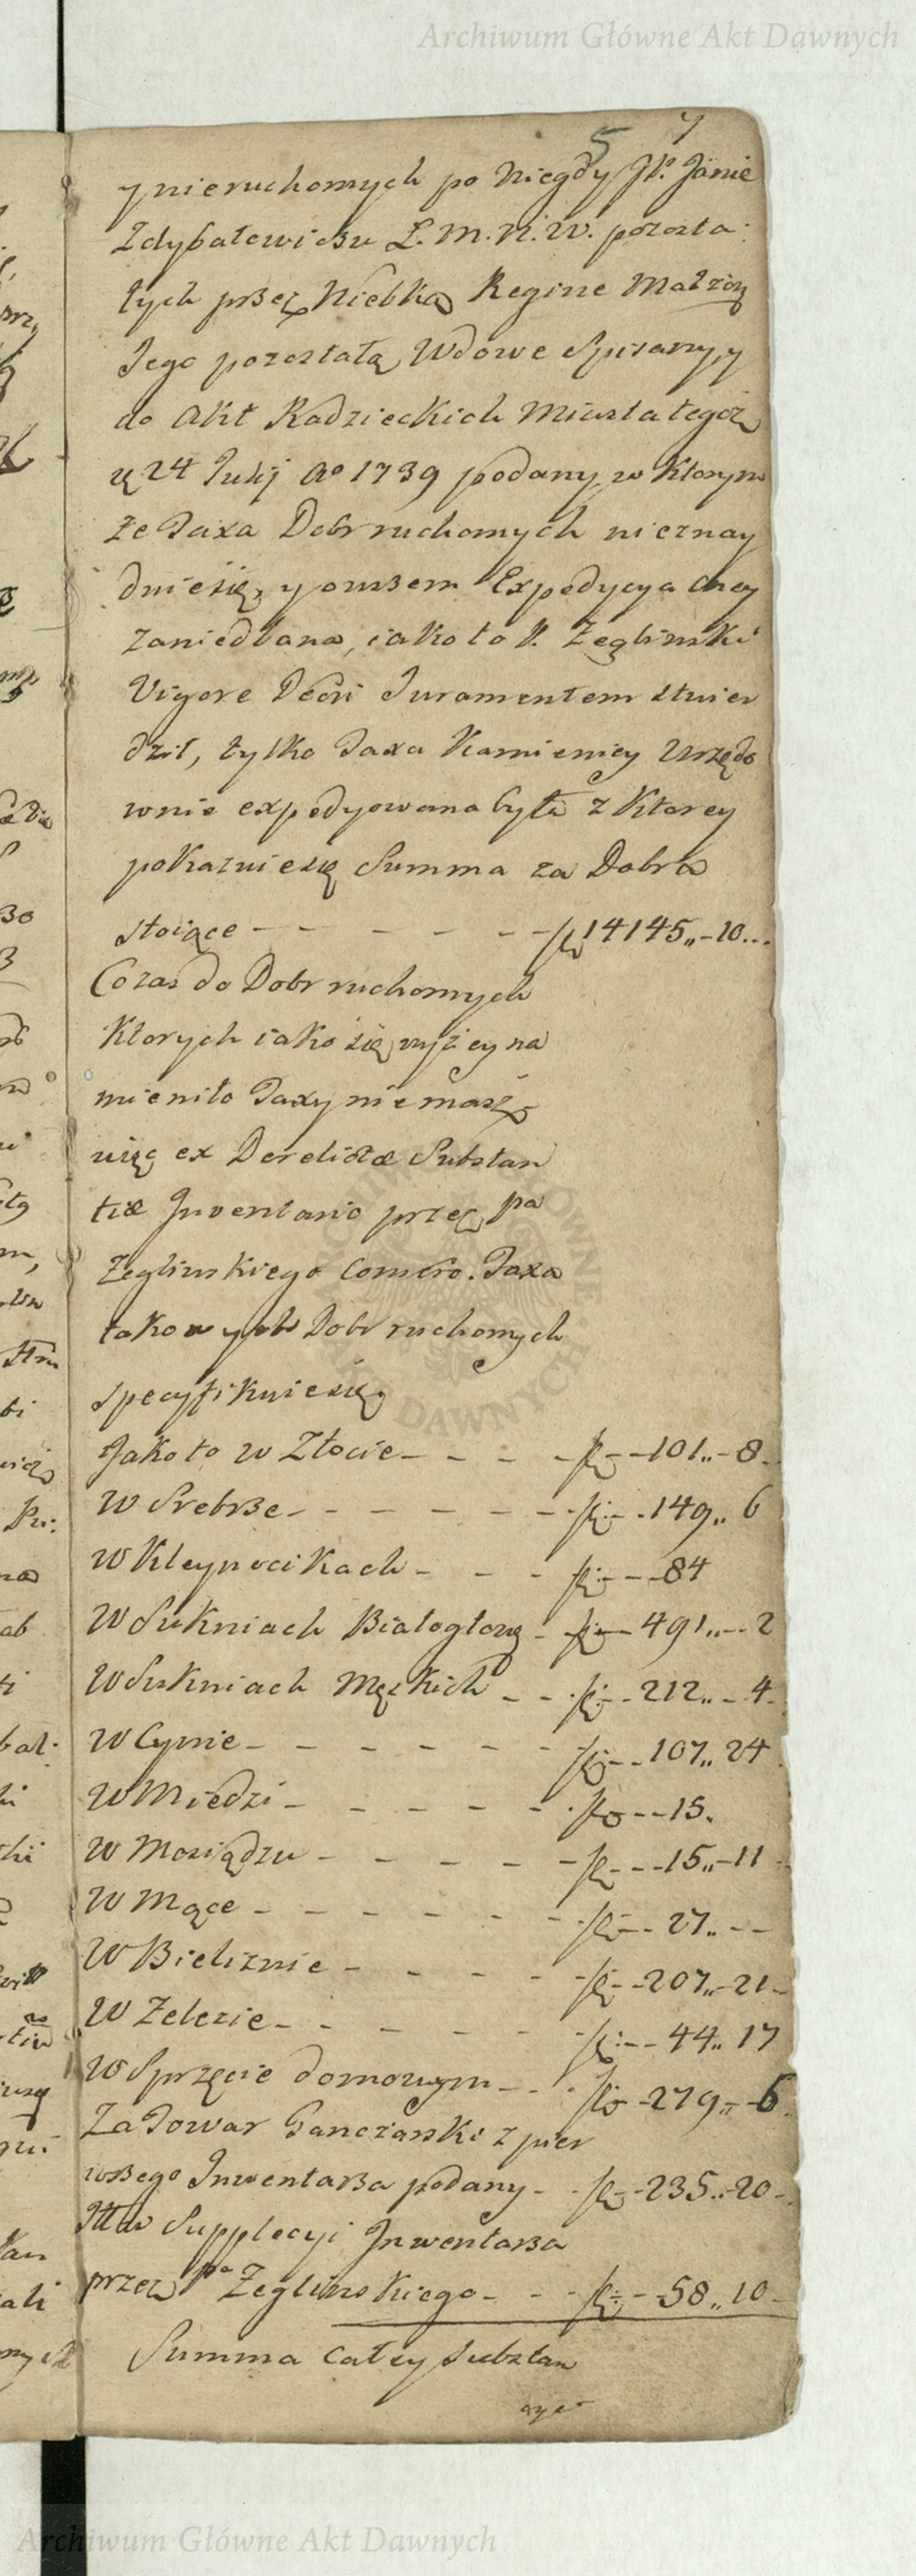 Archiwum Główne Akt Dawnych
5 7
y nieruchomych po Niegdy JP. Janie
Zdybałowiczu Ł. M. N. W. pozosta:
łych przez Niebkę Regine Małżoą
Jego pozostałą Wdowe Spisany, y
do Akt Radzieckich Miasta tegoż
24 Julij Ao 1739 podany, w Ktorym
że Taxa Dobr ruchomych nieznay
dnie się, y owszem Expedycya oney
zaniedbana, iako to P. Zegliński
Vigore Decri Juramentem stwier
dził, tylko Taxa Kamienicy Urzędo
wnie expedyowana była z Ktorey
pokazuie się Summa za Dobra
stoiące - - - - - - fl 14145,,-10...
Co zas do Dobr ruchomych
Ktorych iako się wyżey na
mieniło Taxy niemasz
więc ex Derelictæ Substan
tiæ Inventario przez pa
Zeglinskiego Taxa
takowych Dobr ruchomych
specyfikuie się.
Jako to w Złocie - - - - fl - -101,,-8.
W Srebrze - - - - - - fl - .149,, 6
W Kleynocikach - - - fl - - -84
W Sukniach Białogłowę - fl - 491,,--2
W Sukniach Męskich - - fl - -212,,-4.
W Cynie - - - - - - fl - -107,, 24
W Miedzi - - - - - fl - - -15.
W Mosiądzu - - - - - fl - - -15,,-11
W Mące - - - - - - fl - - 27,,--
W Bieliznie - - - - - fl - -207,,-21-
W Zelezie - - - - - - fl - - 44,, 17
W Sprzęcie domowym - - fl -279,,-6.
Za Towar Ganczarski z pier
wszego Inwentarza podany - fl - -235,,-20-
Item Supplecyi Inwentarza
przez pa Zeglinskiego - - - fl - -58,,10-
Summa całey Substan
cye
ARCHIWUM GŁÓWNE AKT DAWNYCH
Archiwum Główne Akt Dawnych